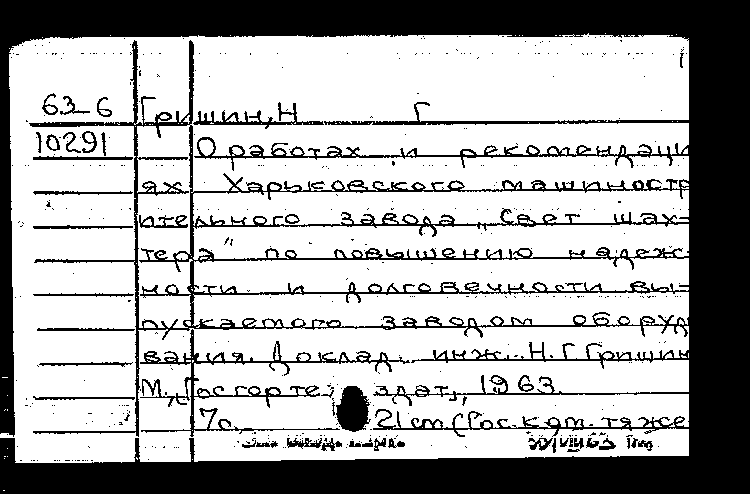 63-6 Гришин, Н Г
10291 О работах и рекомендаци
ях Харьковского машиностр
ительного завода „Свет шах-
тера" по повышению надеж-
ности и долговечности вы-
пускаемого заводом оборуд
вания. Доклад. инж. Н. Г Гришин
М., Госгорте здат, 1963.
7с. 21 cm (Гос. ком. тяже